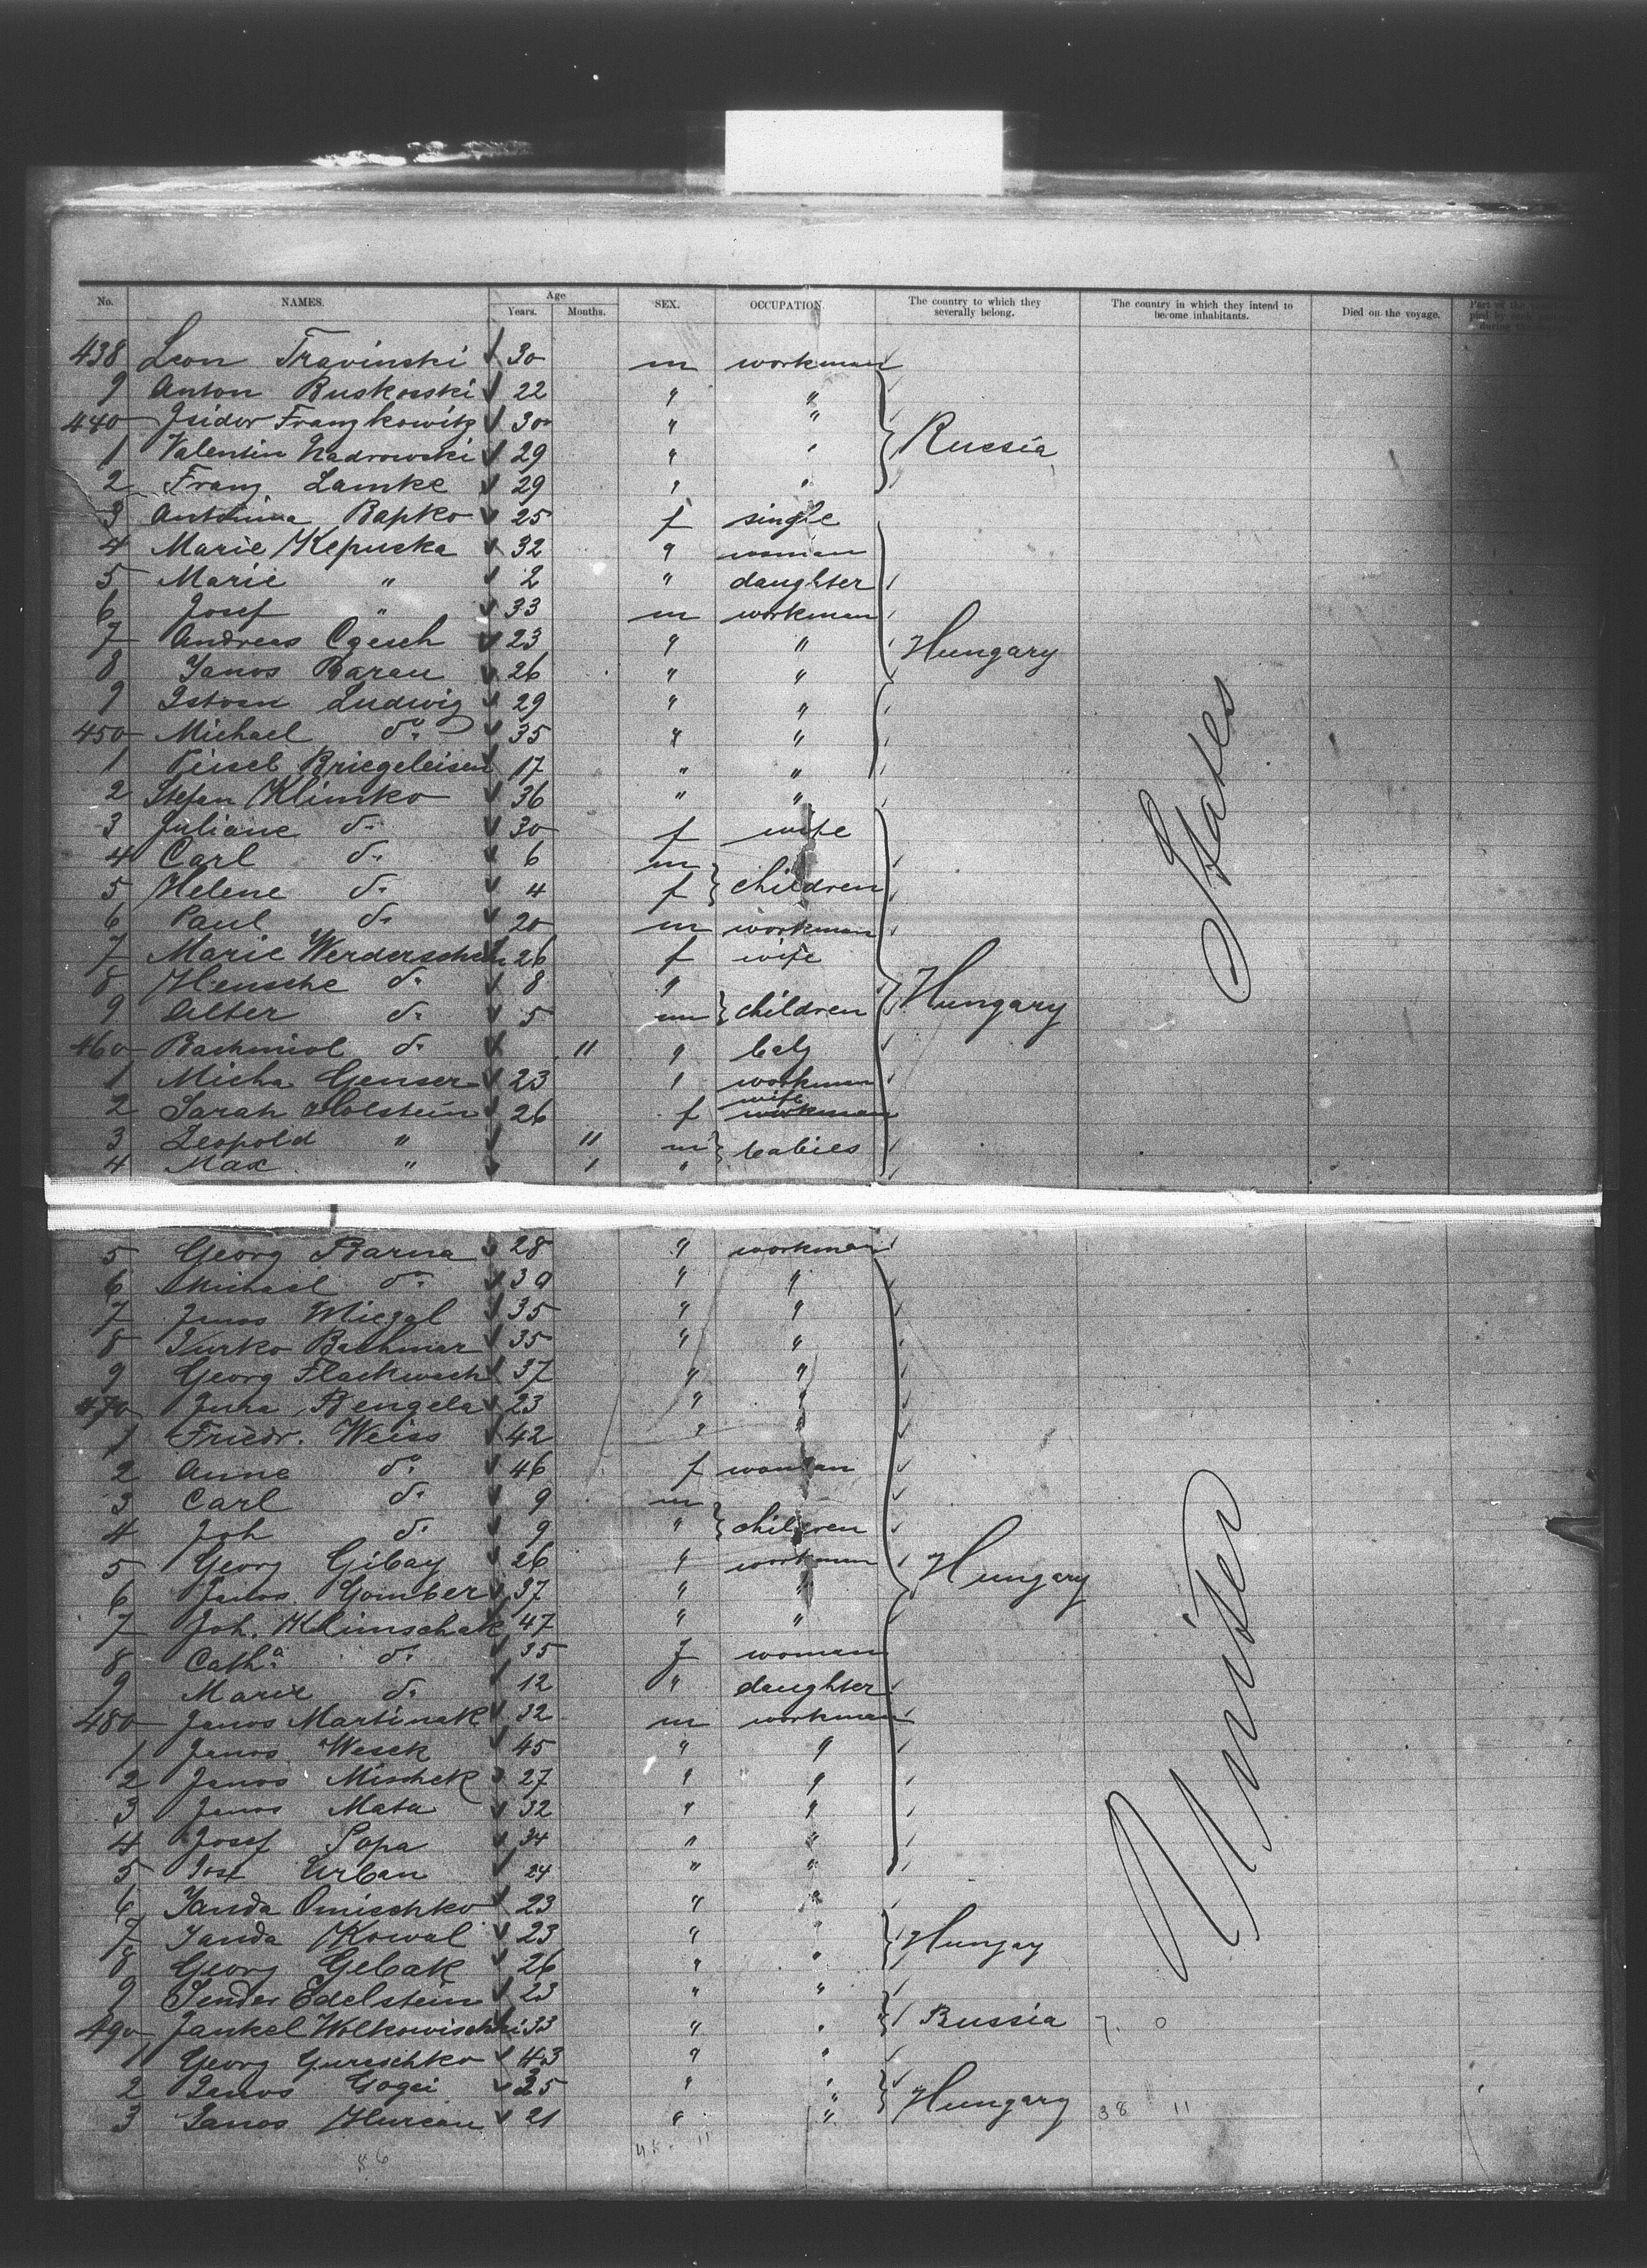 No. NAMES. Age Years. Months. SEX. OCCUPATION. The country to which they severally belong. The country in which they intend to become inhabitants. Died on the voyage.
438 Leon Travinski 30 m workman
9 Anton Ruskowski 22 " "
440 Isidor Franzkowitz 30 " "
1 Valentin Nadrowski 29 " " Russia
2 Franz Lamke 29 " "
3 Antonina Bapko 25 f single
4 Marie Kepuska 32 " woman
5 Marie " 2 " daughter
6 Josef " 33 m workman
7 Andreas Czesch 23 " " Hungary
8 Janos Baran 26 " "
9 Istvan Ludwig 29 " "
450 Michael do. 35 " "
1 Briegeleisen 17 " "
2 Stefan Klimko 36 " "
3 Juliane do. 30 f wife
4 Carl do. 6 m
5 Helene do. 4 f children
6 Paul do. 20 m workman
7 Marie 26 f wife
8 Hensche do. 8 "
9 Alter do. 5 m children Hungary
460 do. 11 " baby
1 Micha Genser 23 " workman
2 Sarah Holstein 26 f wife workman
3 Leopold " 11 m babies
4 Max " 1 "
5 Georg Barna 28 " workman
6 Michael do. 30 " "
7 Janos Miezal 35 " "
8 Jurko Bachmar 35 " "
9 Georg 37 " "
470 Jura Rengela 23 " "
1 Friedr. Weiss 42 " "
2 Anne do. 46 f woman
3 Carl do. 9 m
4 Joh do. 9 " children
5 Georg Gibay 26 " workman Hungary
6 Janos Gomber 37 " "
7 Joh. Klimschak 47 " "
8 Catha. do. 35 f woman
9 Marie do. 12 " daughter
480 Janos Martinak 32 m workman
1 Janos Wesek 45 " "
2 Janos Mischek 27 " "
3 Janos Mata 32 " "
4 Josef Sopa 34 " "
5 Josef Urban 24 " "
6 Janda Onischko 23 " "
7 Janda Kowal 23 " " Hungay
8 Georg Gebak 26 " "
9 Sender Edelstein 23 " "
490 Jankel Wolkowischki 33 " " Russia
1 Georg Gureschko 43 " "
2 Janos Gogei 35 " "
3 Janos Hurcan 21 " " Hungary 38 11
United States
86